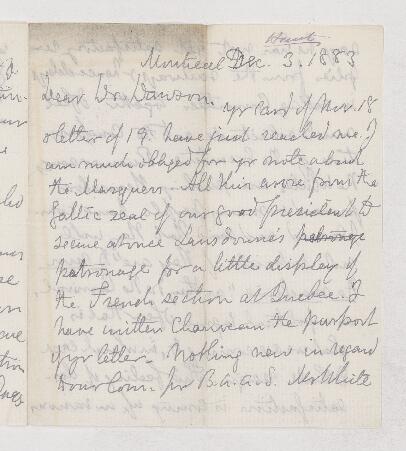 Hunt
Montreal Dec. 3. 1883
Dear Dr Dawson.
yr card of Nov. 18
& letter of 19 have just reached me. I
am much obliged for yr note about
the Marquess. All this arose from the
Gallic zeal of our good president to
secure at once Lansdowne's patronage
patronage for a little display of
the French section at Quebec. I
have written Chauveau the purport
of yr letter. Nothing new in regard
to our Com. for B.a.a.S. Mr White